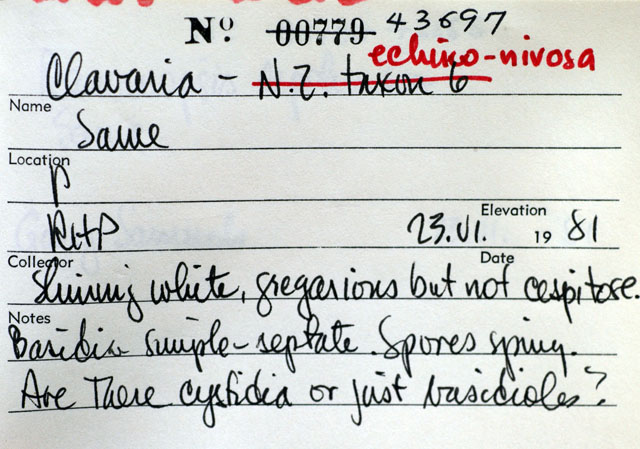 Nº 00779 43697
echino-nivosa
Clavaria - N.Z. taxon 6
Name
Same
Location
P
Elevation
RHP 23.VI. 19 81
Collector Date
Shining white, gregarious but not cespitose.
Notes
Basidia simple-septate. Spores spiny.
Are there cystidia or just basidioles?